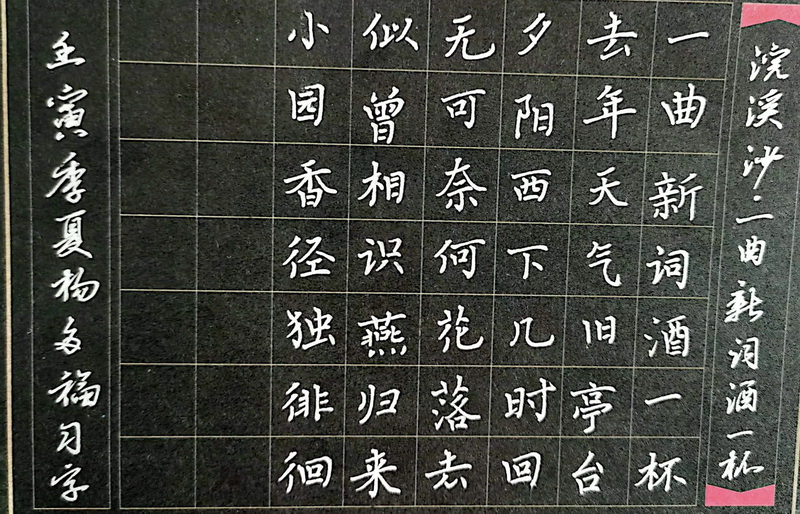 浣溪沙·一曲新词酒一杯
一曲新词酒一杯
去年天气旧亭台
夕阳西下几时回
无可奈何花落去
似曾相识燕归来
小园香径独徘徊
壬寅季夏杨多福习字